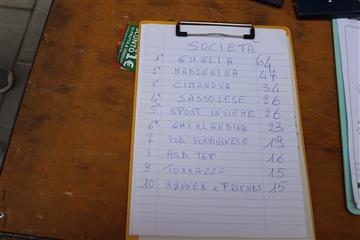 SOCIETA'
1° GUGLIA 64
2° MADONNINA 47
3° CIMANDNA 34
4° SASSOLESE 26
5° SPORT INSIEME 26
6° GHIRLANDINA 23
7 POD. FORMIGINESE 19
8 ASD TEP 16
9 TORRAZZO 15
10 RUNNER e FRIENDS 15
SCONTO 1€